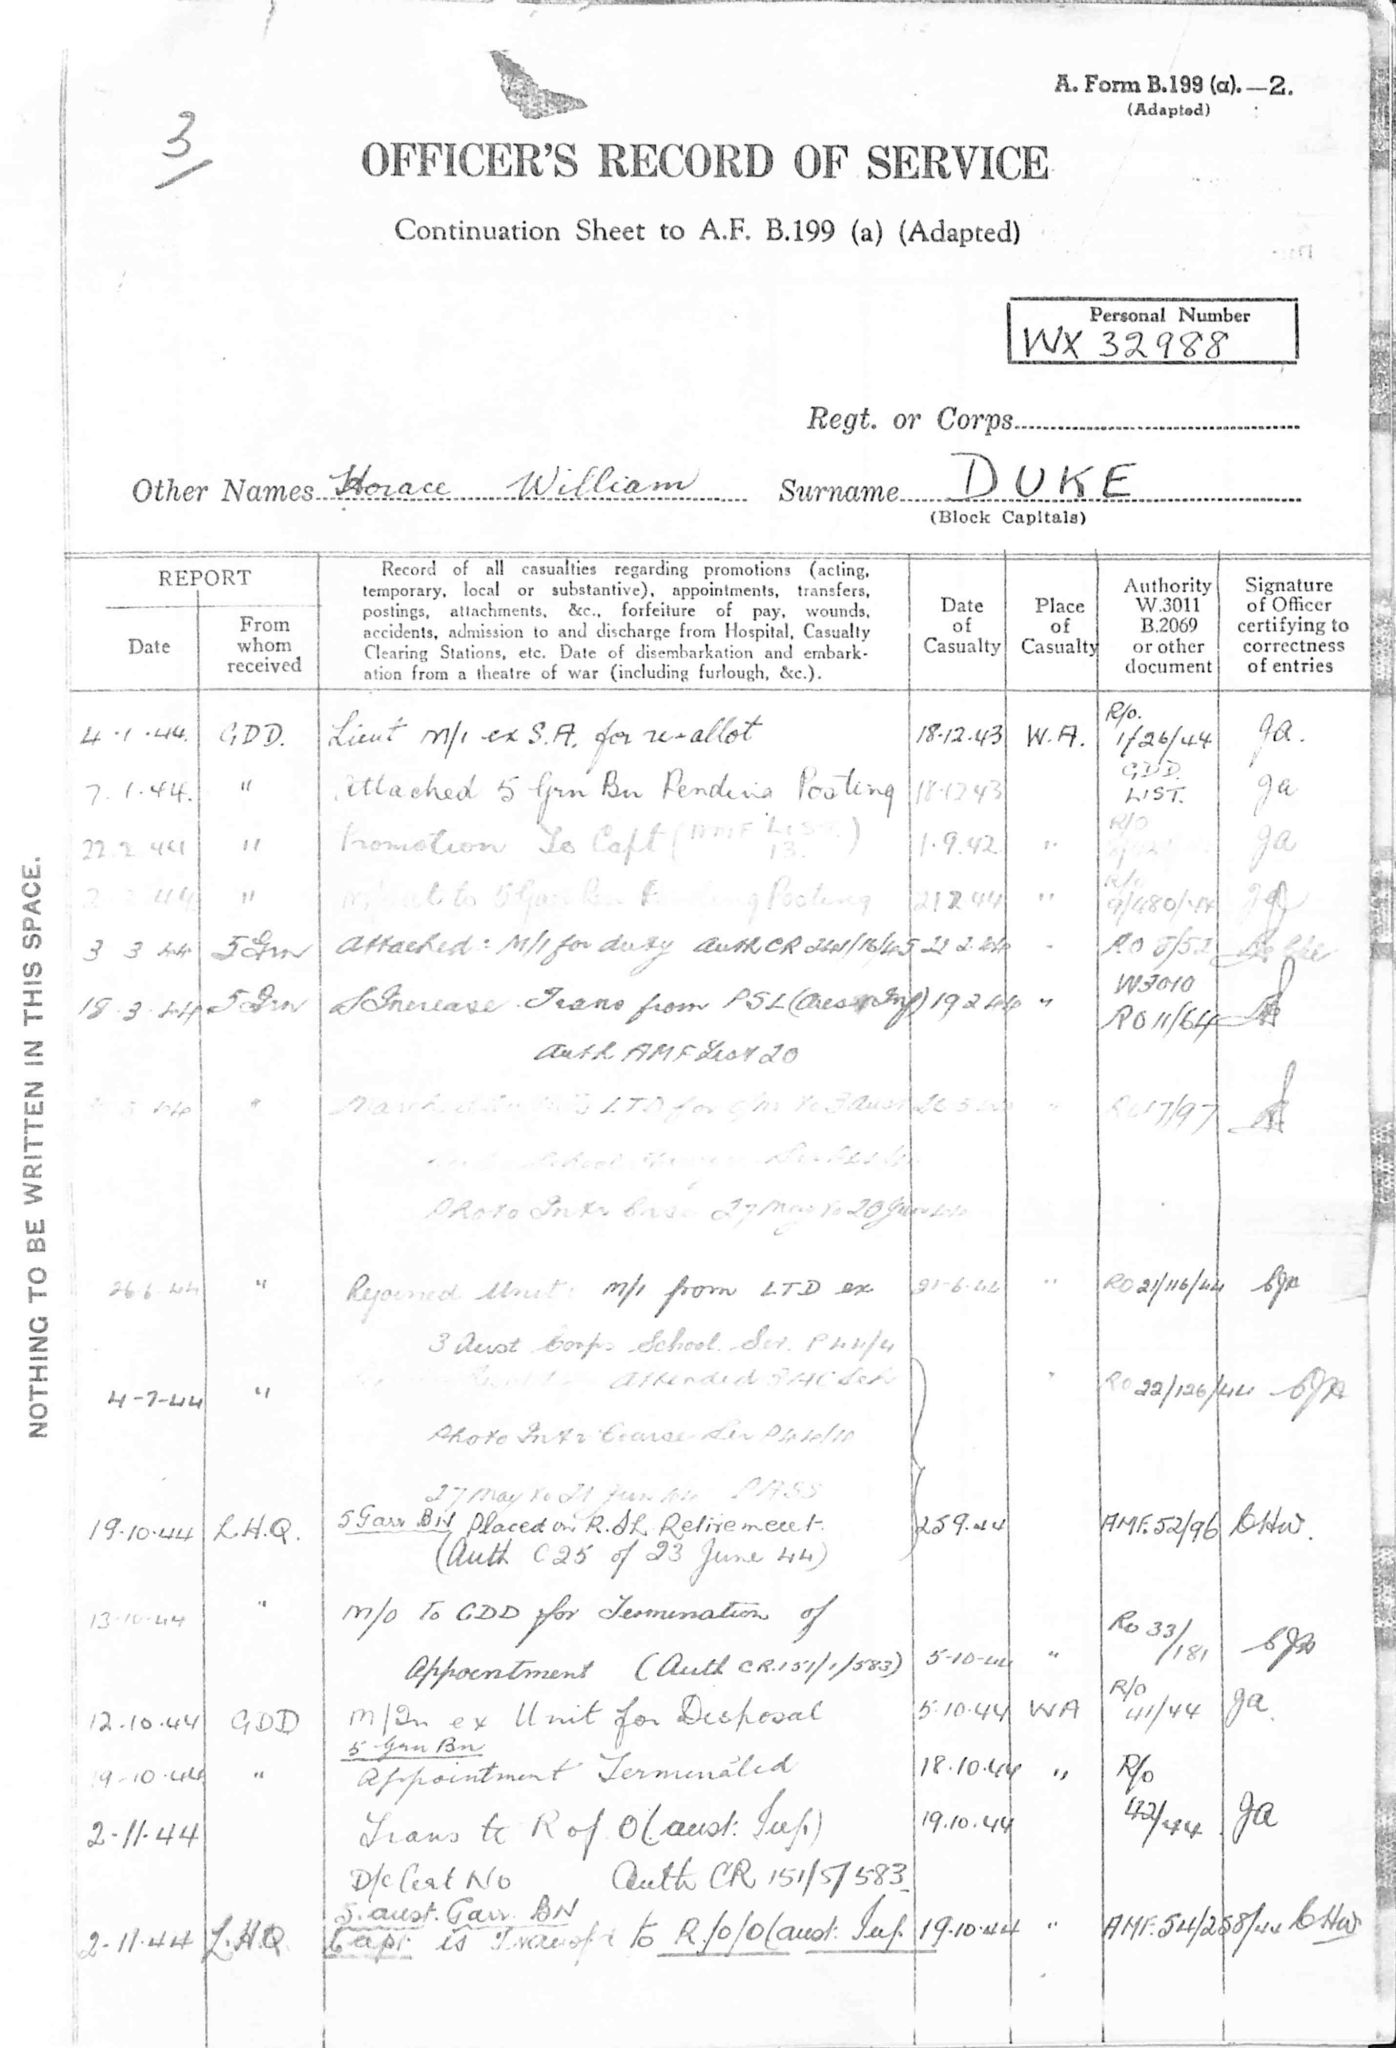 A. Form B.199 (a).—2.
(Adapted)
3
OFFICER'S RECORD OF SERVICE
Continuation Sheet to A.F. B.199 (a) (Adapted)
Personal Number
WX 32988
Regt. or Corps
Other Names Horace William Surname DUKE
(Block Capitals)
REPORT
Date
From whom received
Record of all casualties regarding promotions (acting,
temporary, local or substantive), appointments, transfers,
postings, attachments, &c., forfeiture of pay, wounds,
accidents, admission to and discharge from Hospital, Casualty
Clearing Stations, etc. Date of disembarkation and embark-
ation from a theatre of war (including furlough, &c.).
Date of Casualty
Place of Casualty
Authority W.3011 B.2069 or other document
Signature of Officer certifying to correctness of entries
4.1.44. GDD. Lieut M/I ex S.A. for re-allot 18.12.43 W.A. R/O. 1/26/44 ga.
7.1.44. " Attached 5 Grn Bn Pending Posting 18.12.43 GDD. LIST. ga
22.2.44 " Promotion To Capt (AMF LIST 13.) 1.9.42 " R/O ga
" to 5 Gar Bn Pending Posting 21 2 44 " R/O 9/480/44 ga
3 3 44 5 Grn Attached: M/I for duty Auth CR 241/16/45 21 2 44 RO 8/52
18.3.44 5 Grn Increase Trans from PSL (Aust Inf) 19 2 44 " W3010 RO 11/64
Auth AMF List 20
" LTD for to 3 Aust 26 5 44 " RO 17/97
School
Photo Intr 27 May to 20 Jun 44
26.6.44 " Rejoined Unit: M/I from LTD ex 21-6-44 " RO 21/116/44
3 Aust Corps School Ser. P44/4
4-7-44 " Attended " RO 22/126/44
Photo Intr Course Ser P44/10
27 May to 21 Jun 44 PASS
19.10.44 L.H.Q. 5 Garr BN Placed on R.SL Retirement. 25 9.44 AMF.52/96 CHW.
(Auth C25 of 23 June 44)
13-10-44 " M/O To GDD for Termination of RO 33/181
Appointment (Auth CR.151/1/583) 5-10-44 "
12.10.44 GDD M/In ex Unit for Disposal 5.10.44 WA R/O 41/44 ga.
5 Grn Bn
19-10-44 " Appointment Terminated 18.10.44 " R/O
2-11-44 Trans to R of O (Aust. Inf.) 19.10.44 42/44 ga
D/C Cert No Auth CR 151/5/583
5. Aust. Garr. BN
2-11-44 L.H.Q. Capt is Transf'd to R/o/O (Aust. Inf. 19.10.44 " AMF.54/258/44 CHW
NOTHING TO BE WRITTEN IN THIS SPACE.